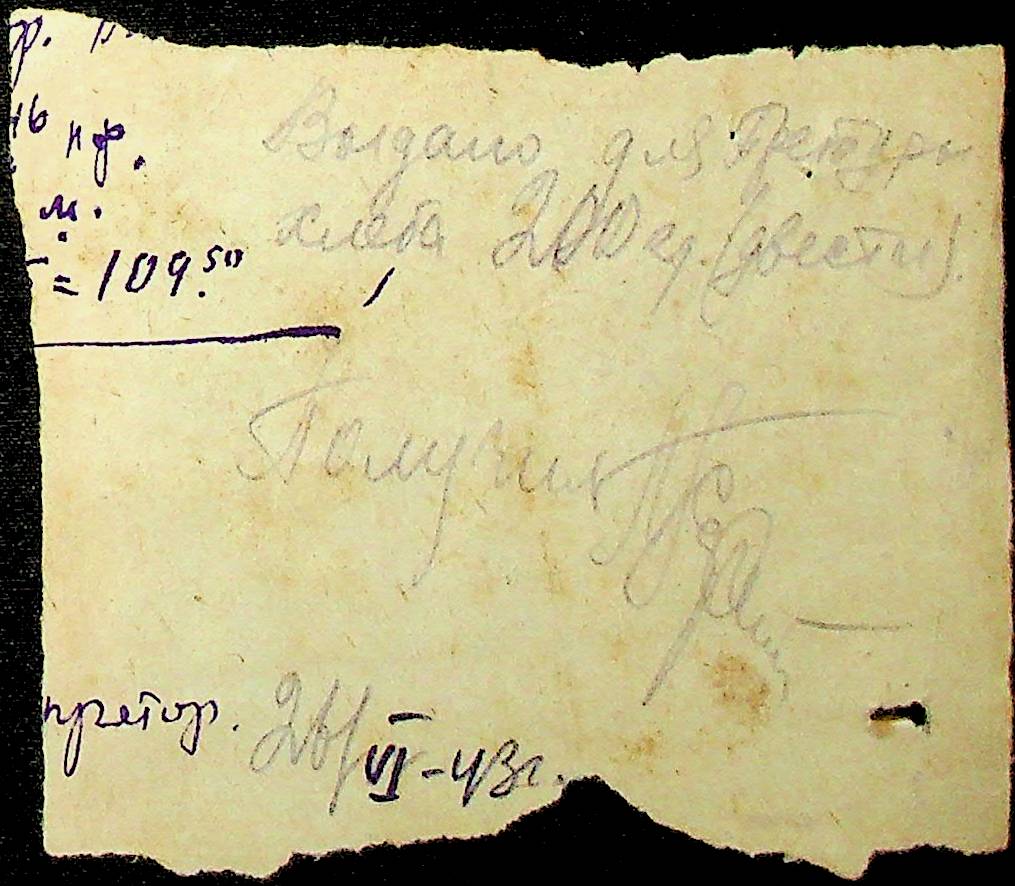 пр. н.
16 пф.
м.
= 109.50
Выдано для Претуры
хлеба 200 кг. (двести).
Получил
претор. 24/VI-43г.